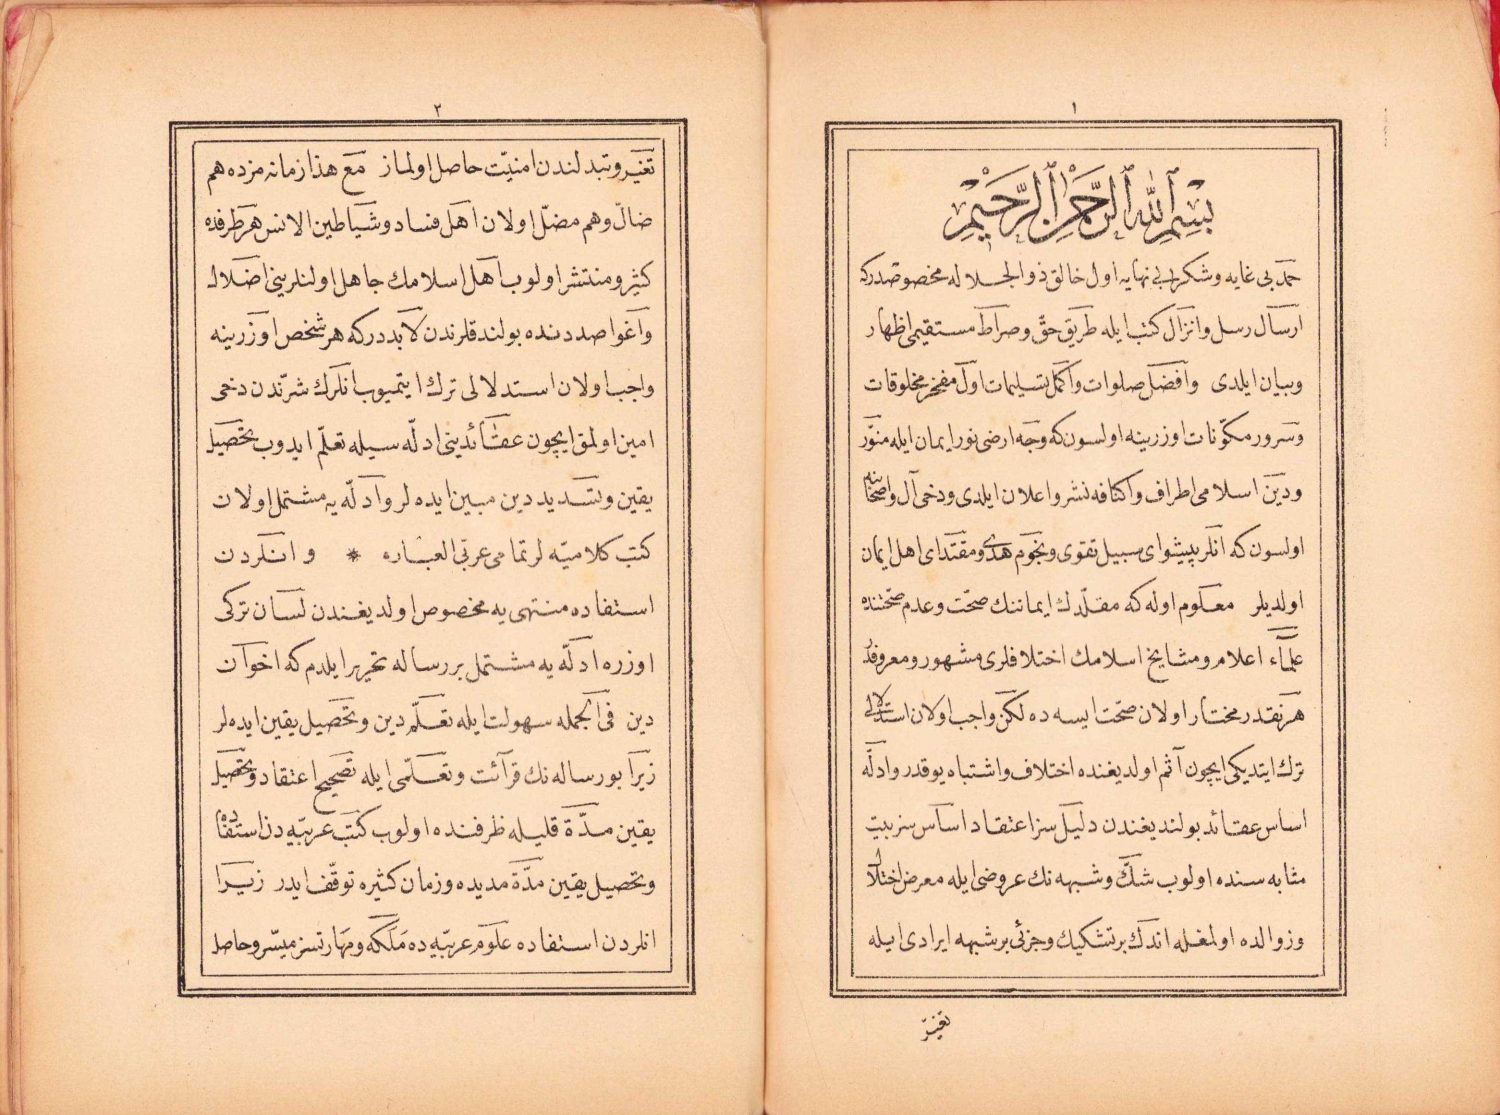 ١
بسم الله الرحمن الرحيم
حمد بی غایه وشكر بی نهایه اول خالق ذوالجلاله مخصوصدرکه
ارسال رسل وانزال كتب ایله طریق حق وصراط مستقیمی اظهار
وبیان ایلدی وافضل صلوات واکمل تسلیمات اول مفخر مخلوقات
وسرور مکوّنات اوزرینه اولسون که وجه ارضی نور ایمان ایله منوّر
ودین اسلامی اطراف واکنافه نشر واعلان ایلدی ودخی آل واصحابنه
اولسون که انلر پیشوای سبیل تقوی ونجوم هدی ومقتدای اهل ایمان
اولدیلر معلوم اوله که مقلّدك ایماننك صحّت وعدم صحّتنده
علماء اعلام ومشایخ اسلامك اختلافلری مشهور ومعروفدر
هر نقدر مختار اولان صحّت ایسه ده لکن واجب اولان استدلالی
ترك ایتدیکی ایچون آثم اولدیغنده اختلاف واشتباه یوقدر وادلّه
اساس عقائد بولندیغندن دلیل سز اعتقاد اساس سز بیت
مثابه سنده اولوب شكّ وشبهه نك عروضی ایله معرض اختلال
وزوالده اولمغله اندك بر تشکیك وجزئی بر شبهه ایرادی ایله
تغیّر
٢
تغیّر وتبدلندن امنیّت حاصل اولماز مع هذا زمانه مزده هم
ضالّ وهم مضلّ اولان اهل فساد وشیاطین الانس هر طرفده
کثیر ومنتشر اولوب اهل اسلامك جاهل اولنلرینی اضلال
واغوا صددنده بولندقلرندن لابددرکه هر شخص اوزرینه
واجب اولان استدلالی ترك ایتمیوب انلرك شرّندن دخی
امین اولمق ایچون عقائد ینی ادلّه سیله تعلّم ایدوب تحصیل
یقین وتشدید دین مبین ایده لر وادلّه یه مشتمل اولان
کتب کلامیّه لر تمامی عربی العباره * وانلردن
استفاده منتهی یه مخصوص اولدیغندن لسان ترکی
اوزره ادلّه یه مشتمل بر رساله تحریر ایلدم که اخوان
دین فی الجمله سهولت ایله تعلّم دین وتحصیل یقین ایده لر
زیرا بو رساله نك قرائت وتعلّمی ایله تصحیح اعتقاد وتحصیل
یقین مدّة قلیله ظرفنده اولوب کتب عربیّه دن استفاده
وتحصیل یقین مدّة مدیده وزمان کثیره توقّف ایدر زیرا
انلردن استفاده علوم عربیّه ده ملکه ومهارتسز میسّر وحاصل